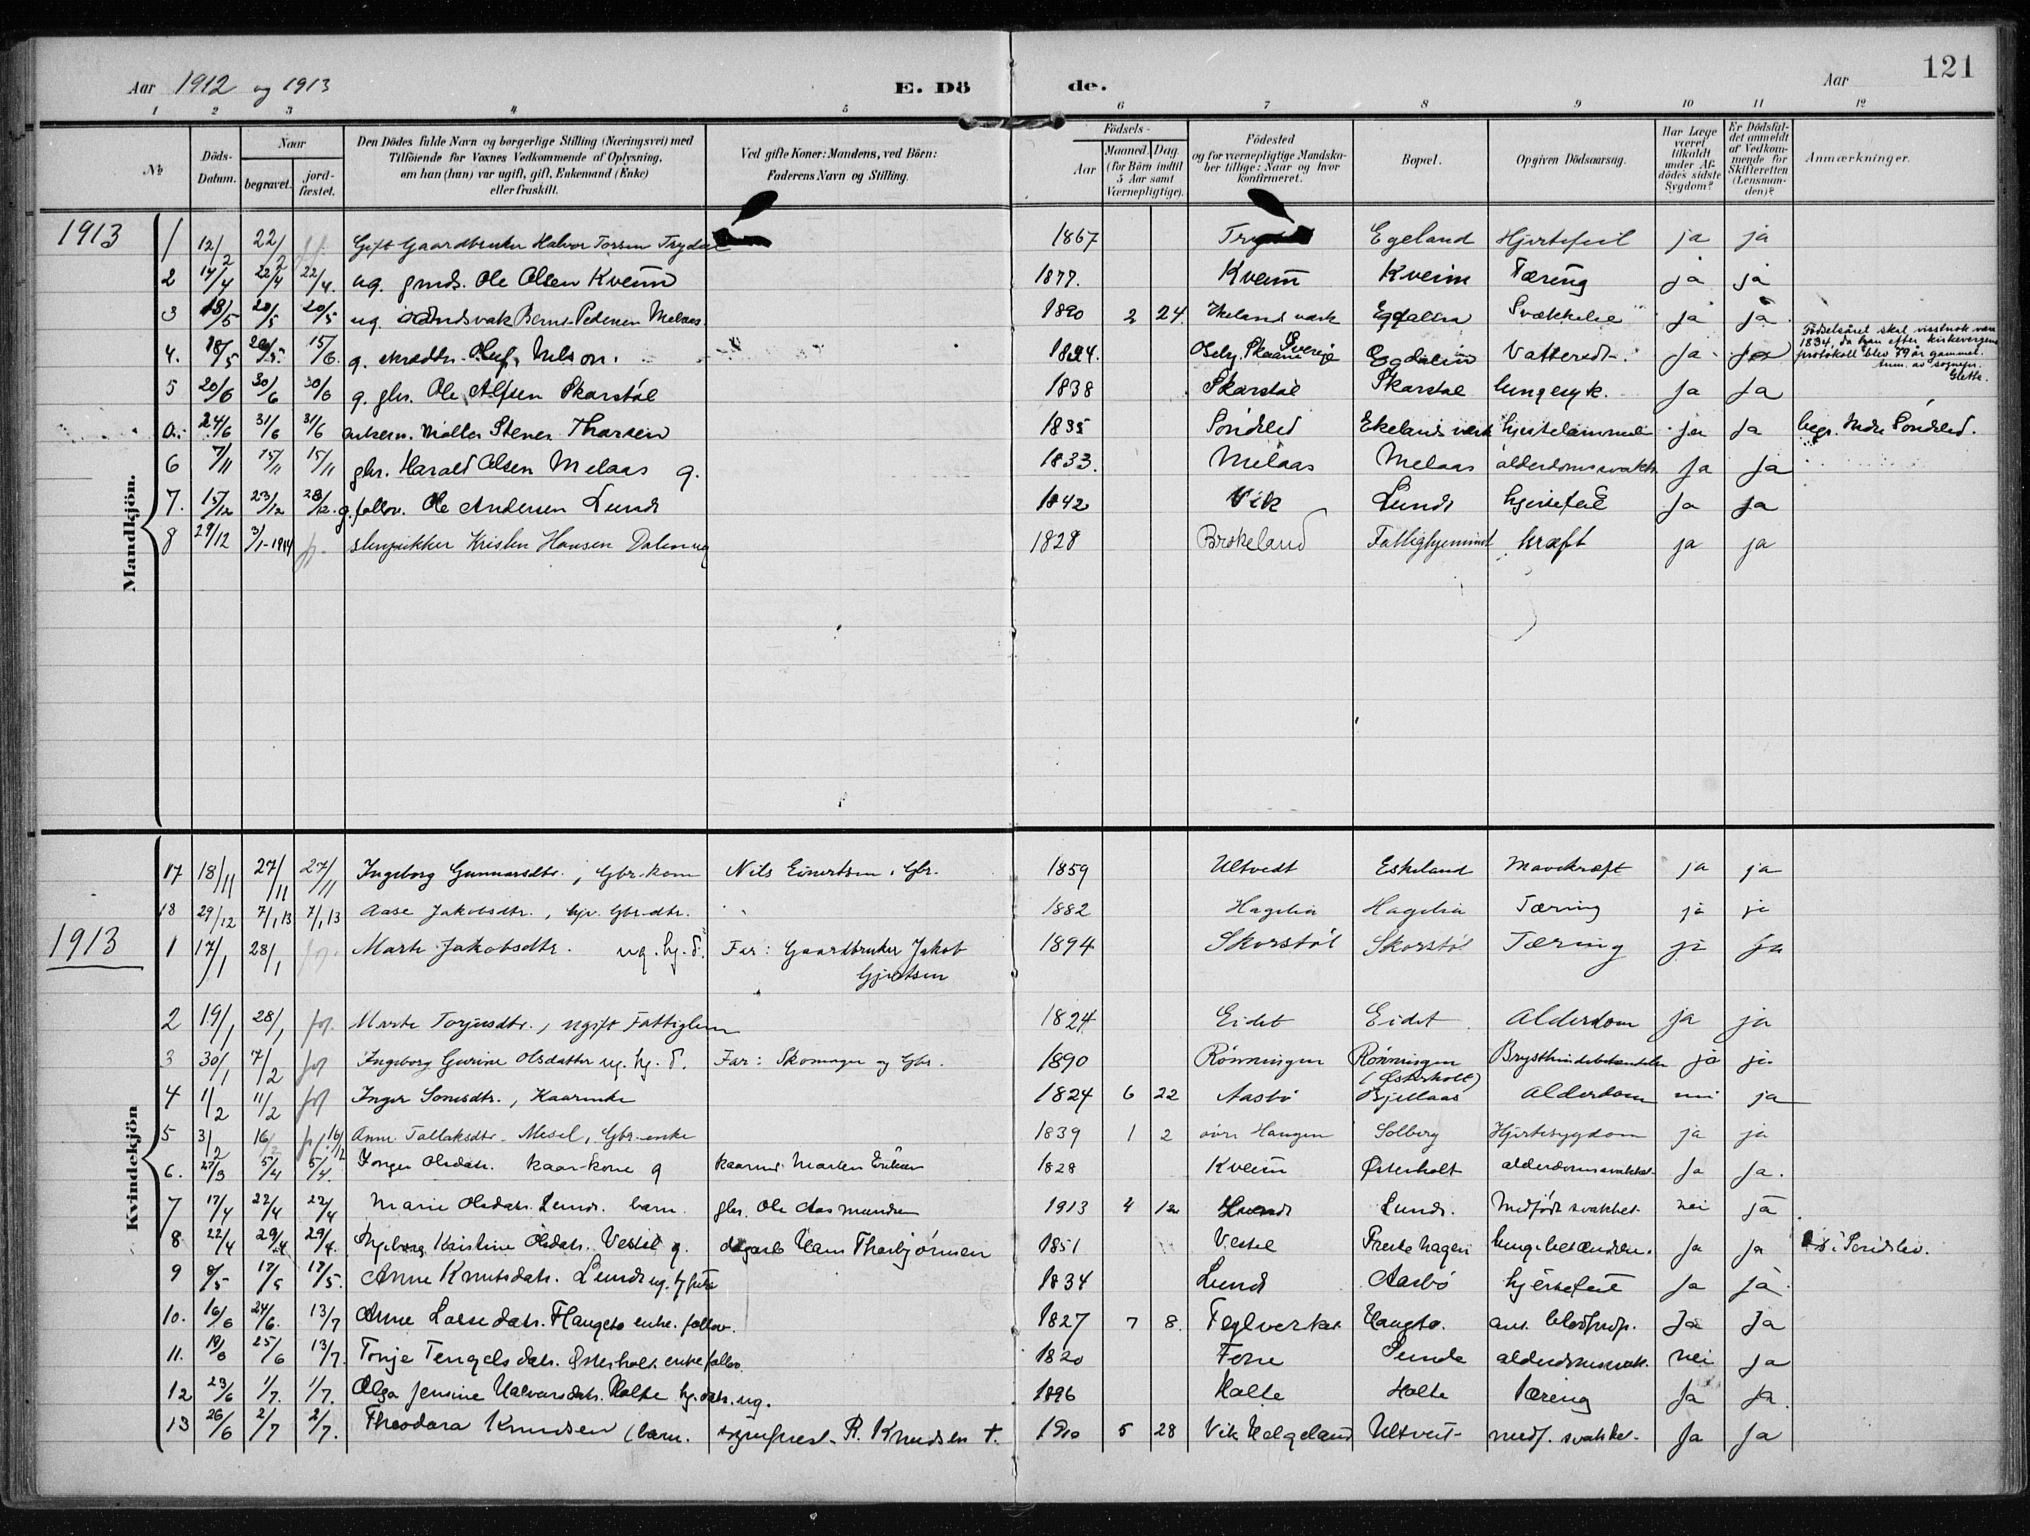 Aar 1912 og 1913 E. Dö de. Aar 121
1 2 3 4 5 6 7 8 9 10 11 12
No Döds-Datum. Naar begravet. jord-fæstet. Den Dödes fulde Navn og borgerlige Stilling (Næringsvei) med Tilföiende for Voxnes Vedkommende af Oplysning, om han (hun) var ugift, gift, Enkemand (Enke) eller fraskilt. Ved gifte Koner: Mandens, ved Börn: Faderens Navn og Stilling. Födsels- Aar Maaned. Dag. (for Börn indtil 5 Aar samt Værnepligtige). Födested og for værnepligtige Mandskaber tillige: Naar og hvor konfirmeret. Bopæl. Opgiven Dödsaarsag. Har Læge været tilkaldt under Afdödes sidste Sygdom? Er Dödsfaldet anmeldt af Vedkommende for Skifteretten (Lensmanden)? Anmærkninger.
Mandkjön.
1913 1 12/2 22/2 Gift Gaardbruker Halvor Torsen Trydal 1867 Egeland Hjertefeil ja ja
2 14/4 22/4 22/4. ug. gmds. Ole Olsen Kveim 1877. Kveim Kveim Tæring ja ja
3 18/5 20/5 20/5 ug. Bernt Pedersen Melaas. 1890 2 24. Ekeland værk Egdalen Svækkelse ja ja.
4. 18/5 15/6. g. Oluf Nilson. 1824. Skaane Sverige Egdalen Vattersot. ja ja Födselsåret skal visstnok være 1834, da han efter kirkevergens protokoll blev 79 år gammel. Anm. av sognepr. Gleth.
5 20/6 30/6 30/6 g. gbr. Ole Alfsen Skarstöl 1838 Skarstöl Skarstöl lungesyk. ja ja
a. 24/6 31/6 31/6 Möller Stener Thorsen 1835 Söndeled Ekelands værk hjertelammelse ja ja begr. Indre Söndeled.
6 7/11 15/11 15/11 gbr. Harald Olsen Melaas g. 1833. Melaas Melaas alderdomssvakh. ja ja
7. 15/12 23/12 28/12. g. follov. Ole Andersen Lunde 1842 Vik Lunde hjertefeil ja ja
8 29/12 3/1-1914 Kristen Hansen Dalen ug 1828 Brokeland Fattighjemmet kræft ja ja
Kvindekjön
17 18/11 27/11 27/11 Ingeborg Gunnarsdtr., Gbr.-kone Nils Einertsen, Gbr. 1859 Ultvedt Eskeland Mavekræft ja ja
18 29/12 7/1 13 7/1 13 Aase Jakobsdtr., hjv. Gbr-dtr. 1882 Hagelia Hagelia Tæring ja ja
1913 1 17/1 28/1 Marte Jakobsdtr. ug. hj. d. Far: Gaardbruker Jakob Gjertsen 1894 Skorstöl Skorstöl Tæring ja ja
2 19/1 28/1 Torjusdtr., ugift Fattiglem 1824 Eidet Eidet Alderdom ja ja
3 30/1 7/2 Ingeborg Gurine Olsdatter ug. hj. d. Far: Skomager og Gbr. 1890 Rönningen Rönningen (Østerholt) ja ja
4 1/2 11/2 Inger, Kaarenke 1824 6 22 Aasbö Gjellaas Alderdom nei ja
5 3/2 16/2 16/12 Anne Tallaksdtr. Mesel, Gbr-enke 1839 1 2 övre Haugen Solberg Hjertesygdom ja ja
6. 27/3 5/4 5/4. Olsdatr. kaar-kone g kaarm. Morten Eriksen 1828 Kveim Østerholt alderdomssvakhet ja ja.
7 17/4 22/4 22/4 Marie Olsdatr. Lunde. barn. gbr. Ole Aasmundsen 1913 4 12 Lunde Lunde. Medfödt svakhet nei ja
8 22/4 29/4 29/4. Ingeborg Kristine Olsdatr. Vestöl g. Hans Thorbjörnsen 1851 Vestöl Prestehagen lungebetændelse. ja ja i Söndeled.
9 8/5 17/5 17/5. Anne Knutsdatr. Lunde ug. 1834 Lunde Aasbö hjertefeil ja ja
10. 16/6 24/6. 13/7 Anne Haugsto enke. follov. 1827 7 8. Teglverket Haugsto. ja ja
11. 19/6 25/6 13/7. Tonje Tengelsdatr. Østerholt enke follov. 1820 Fone Sunde alderdomssvak. nei ja
12 23/6 1/7. 1/7. Olga Jensine Halvorsdatr. Holte hj. datr. ug. 1896 Holte Holte Tæring ja ja.
13 26/6 2/7 2/7. Theodora Knudsen (barn. sogneprest R. Knudsen †. 1910 5 28 Vik Helgeland Ultveit medf. svakhet ja ja